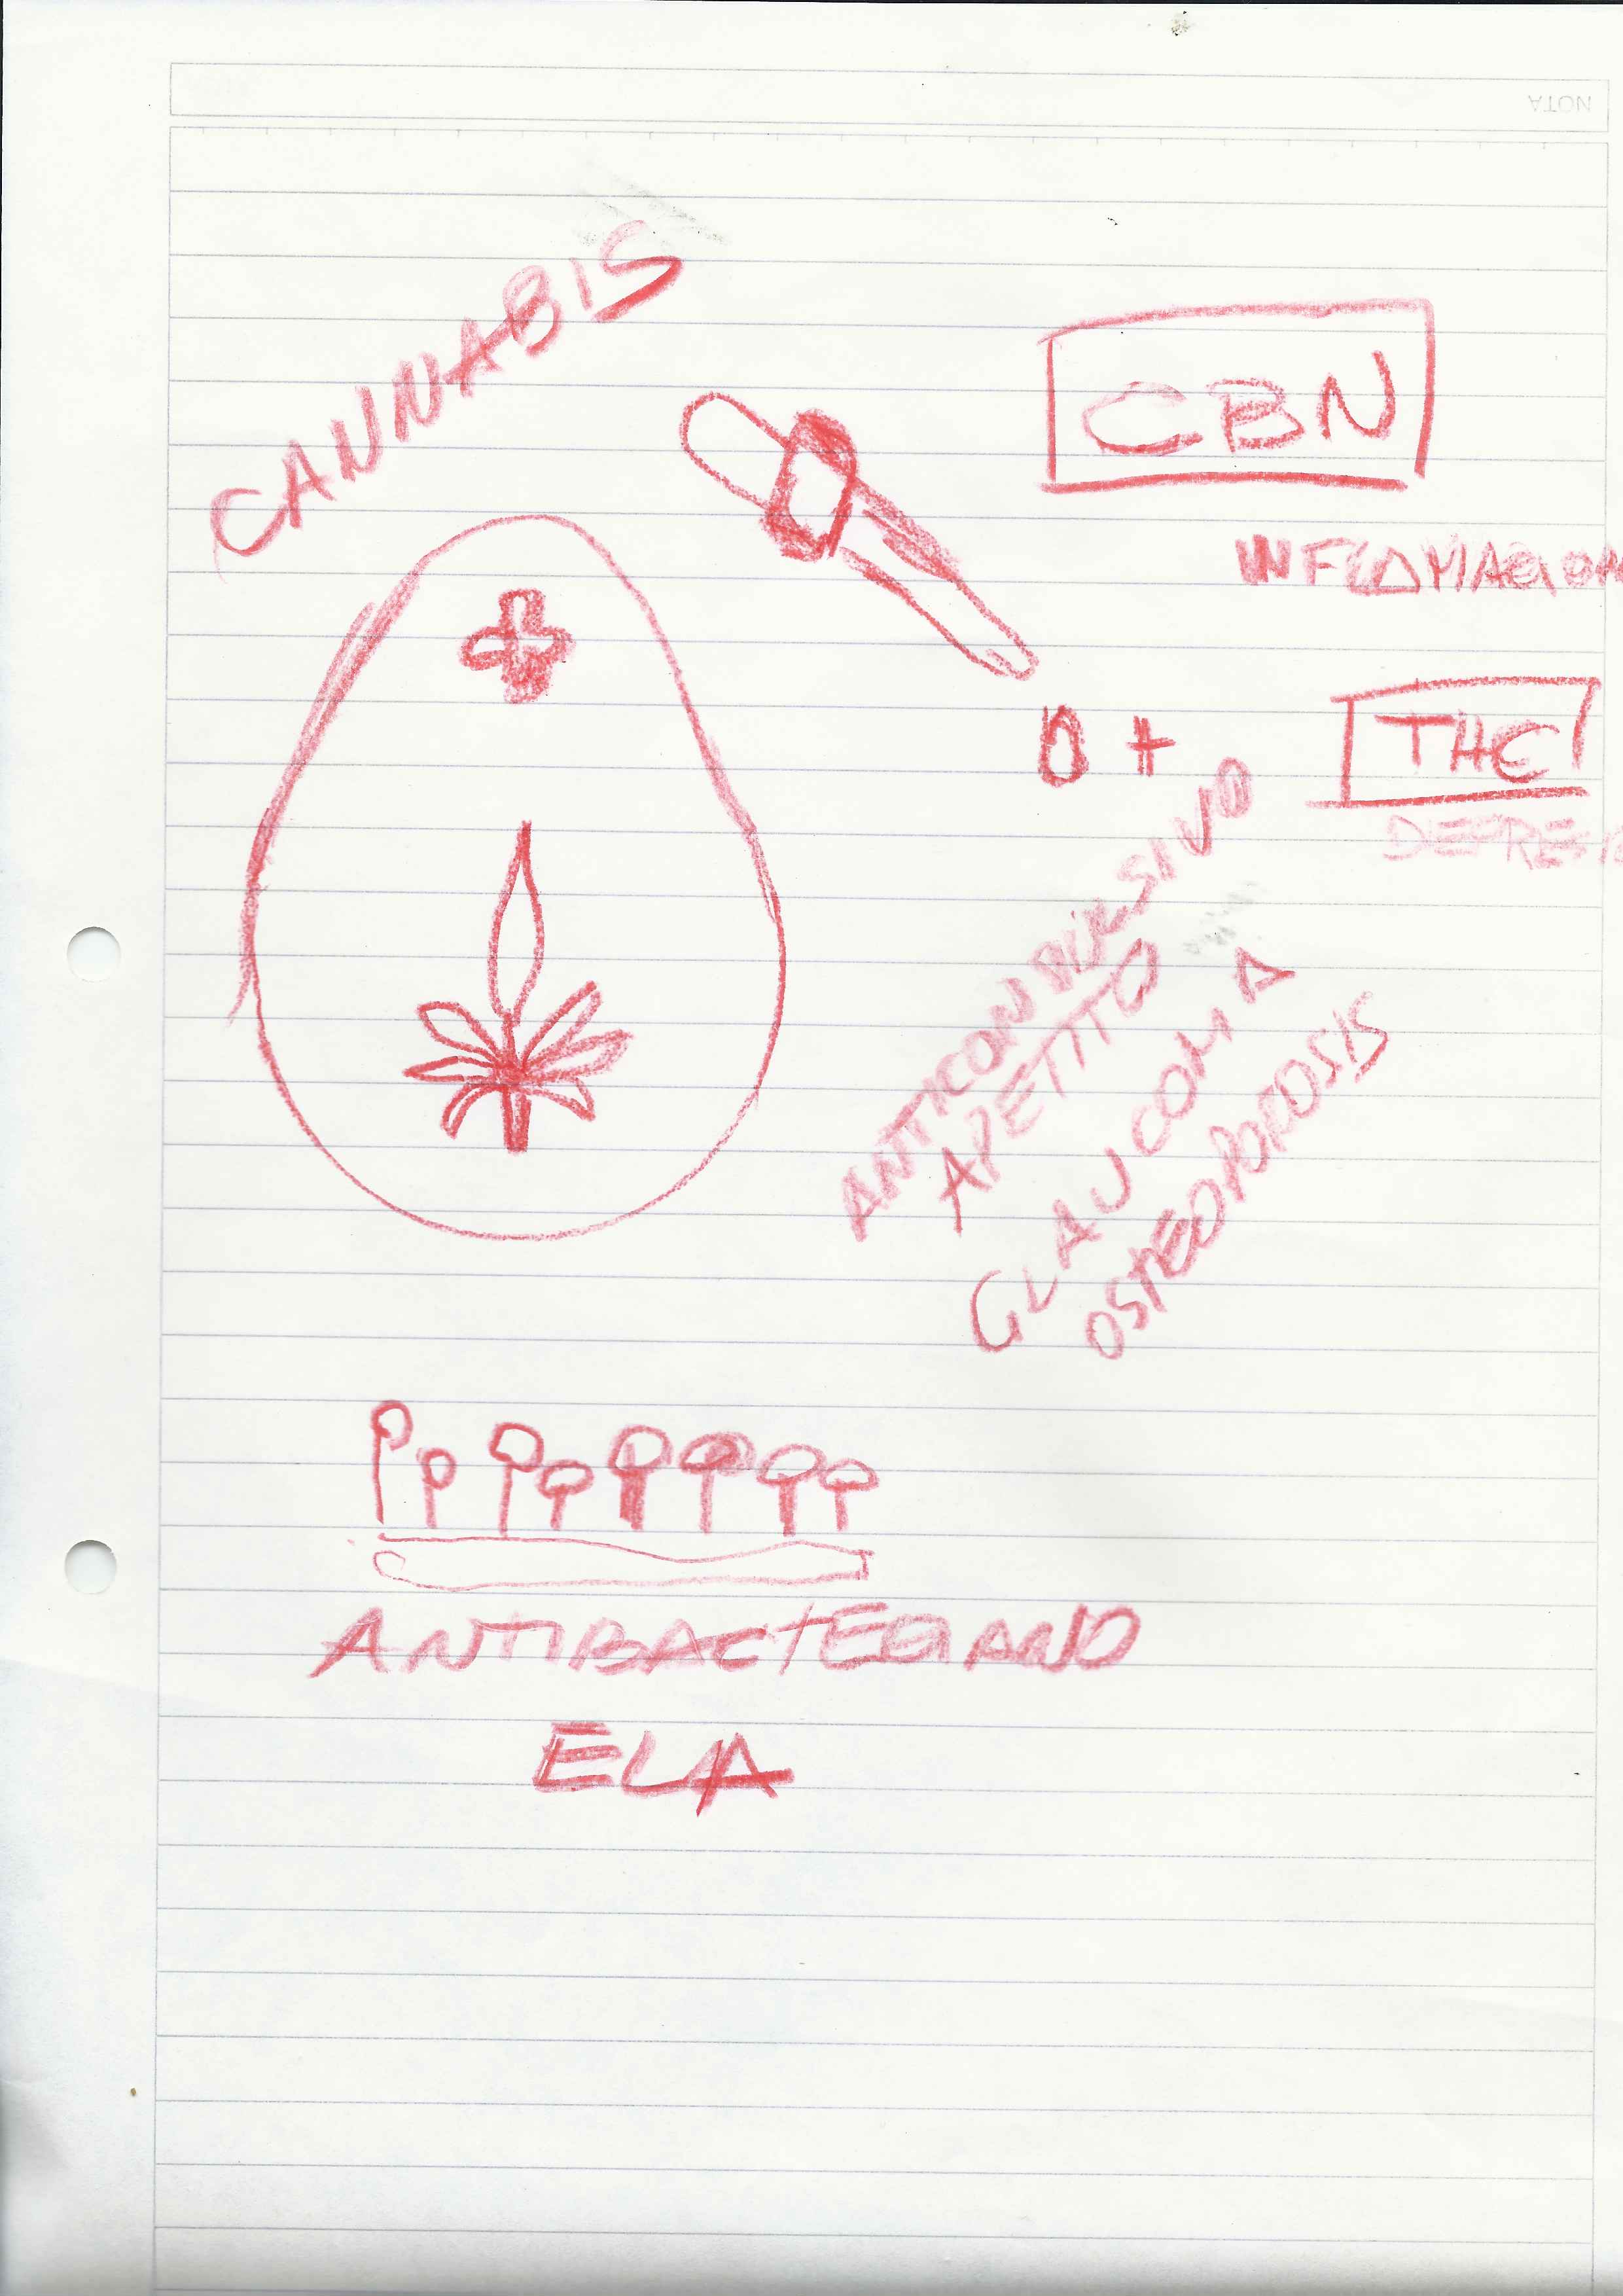 NOTA
CANNABIS
CBN
INFLAMACION
0 +
THC
DEPRES
ANTICONDULSIVO
APETITO
GLAUCOMA
OSTEOPOROSIS
ELA